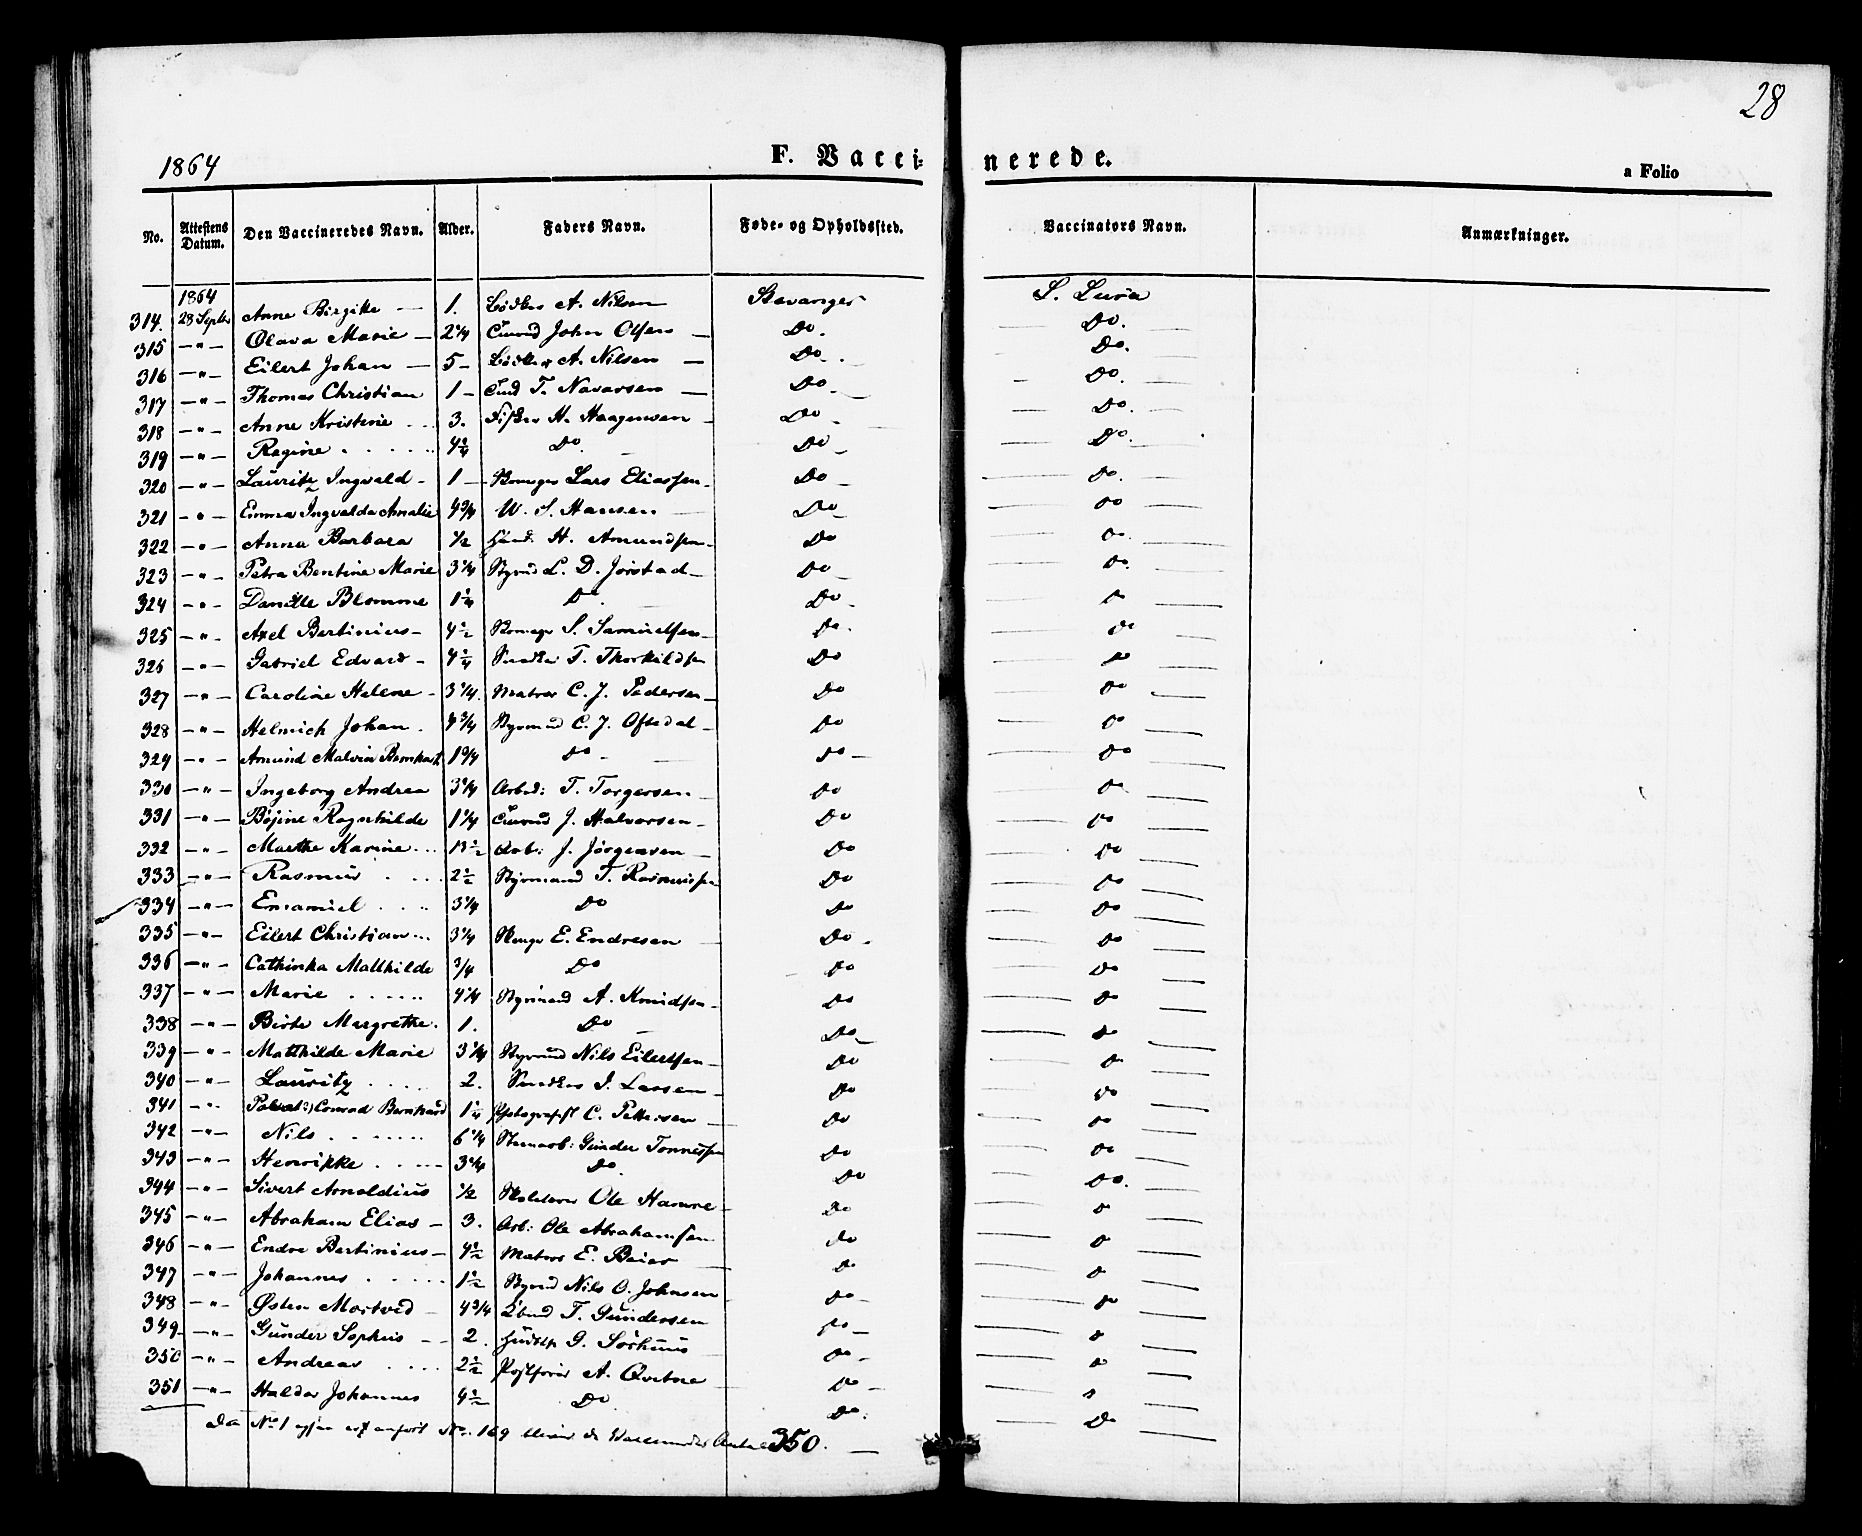 28
1864
F. Vacci-nerede.
a Folio
No. Attestens Datum. Den Vaccineredes Navn. Alder. Faders Navn. Føde- og Opholdssted. Vaccinators Navn. Anmærkninger.
1864
314. 28 Septbr Anne Birgitte — 1. Bødker A. Nilsen Stavanger S. Lura
315 — " — Olava Marie — 2 1/4 John Olsen — Do. Do.
316 — " — Eilert Johan — 5 — Bødker A. Nilsen — Do. Do.
317 — " — Thomas Christian 1 — T. Navarsen — Do Do.
318 — " — Anne Kristine 3. Fisker H. Haagensen Do Do.
319 — " — Regine 4 1/4 Do Do Do.
320 — " — Lauritz Ingvald 1 — Lars Eliassen Do Do.
321 — " — Emma Ingvalda Amalie 4 3/4 W. S. Hansen Do Do
322 — " — Anna Barbara 1/2 H. Amundsen Do Do.
323 — " — Petra Bentine Marie 3 1/4 Styrmd L. D. Jørstad Do Do.
324 — " — Danille Blomme 1 1/4 Do Do Do
325 — " — Axel Bertinius 4 1/2 S. Samuelsen Do. Do
326 — " — Gabriel Edvard 4 1/4 Snedker T. Thorkildsen Do Do
327 — " — Caroline Helene 3 1/4. Matros C. J. Pedersen Do Do
328 — " — Helmich Johan 4 3/4 Styrmd C. J. Oftedal Do Do
329 — " — Amund Malvin Bernhart 1 3/4 Do Do Do
330 — " — Ingeborg Andrea 3 1/4 Arbd: T. Torgersen Do Do
331 — " — Bøjine Ragnhilde 1 1/4 J. Halvorsen Do Do
332 — " — Marthe Karine 13 1/2 Arb: J. Jørgensen Do Do
333 — " — Rasmus 2 1/2 Styrmand T. Rasmussen Do Do
334 — " — Emanuel 3 1/4 Do Do Do
335 — " — Eilert Christian 3 1/4 E. Endresen Do Do
336 — " — Cathinka Mathilde 3/4 Do Do Do
337 — " — Marie 4 1/4 Styrmand A. Knudsen Do Do
338 — " — Birte Margrethe 1. Do Do Do
339 — " — Mathilde Marie 3 1/4 Styrmd Nils Eilertsen Do Do
340 — " — Lauritz 2. Snedker I. Larsen Do Do
341 — " — Conrad Bernhard 1 1/4 Photografist C. Pettersen Do Do
342 — " — Nils 6 1/4 Stenarb: Gunder Tønnessen Do Do
343 — " — Henrikke 3 1/4 Do Do Do.
344 — " — Sivert Arnoldius 1/2 Skolelærer Ole Hamre Do Do
345 — " — Abraham Elias — 3. Arb: Ole Abrahamsen Do Do
346 — " — Endre Bertinius — 4 1/2 Matros E. Beier Do Do
347 — " — Johannes 1 1/2 Styrmd Nils O. Johnsen Do Do
348 — " — Østen Mortved 4 3/4 T. Gundersen Do Do
349 — " — Gunder Sophus 2. G. Sørhuus Do Do
350 — " — Andreas 2 1/2 A. Qvitne Do
351 — " — Haldor Johannes 4 1/2 Do Do. Do
Da No 1 anført No. 169 bliver de Vaccineredes Antal 350.